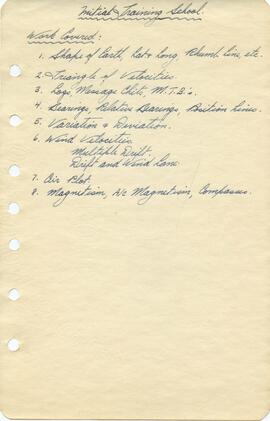 Initial Training School.
Work Covered:
1. Shape of Earth, Lat & Long, Rhumb line, etc.
2. Triangle of Velocities.
3. Logs, Message Chits, M.T.B's.
4. Bearings, Relative Bearings, Position Lines.
5. Variation & Deviation.
6. Wind Velocities.
Multiple Drift.
Drift and Wind Lane.
7. Air Plot.
8. Magnetism, A/c Magnetism, Compasses.